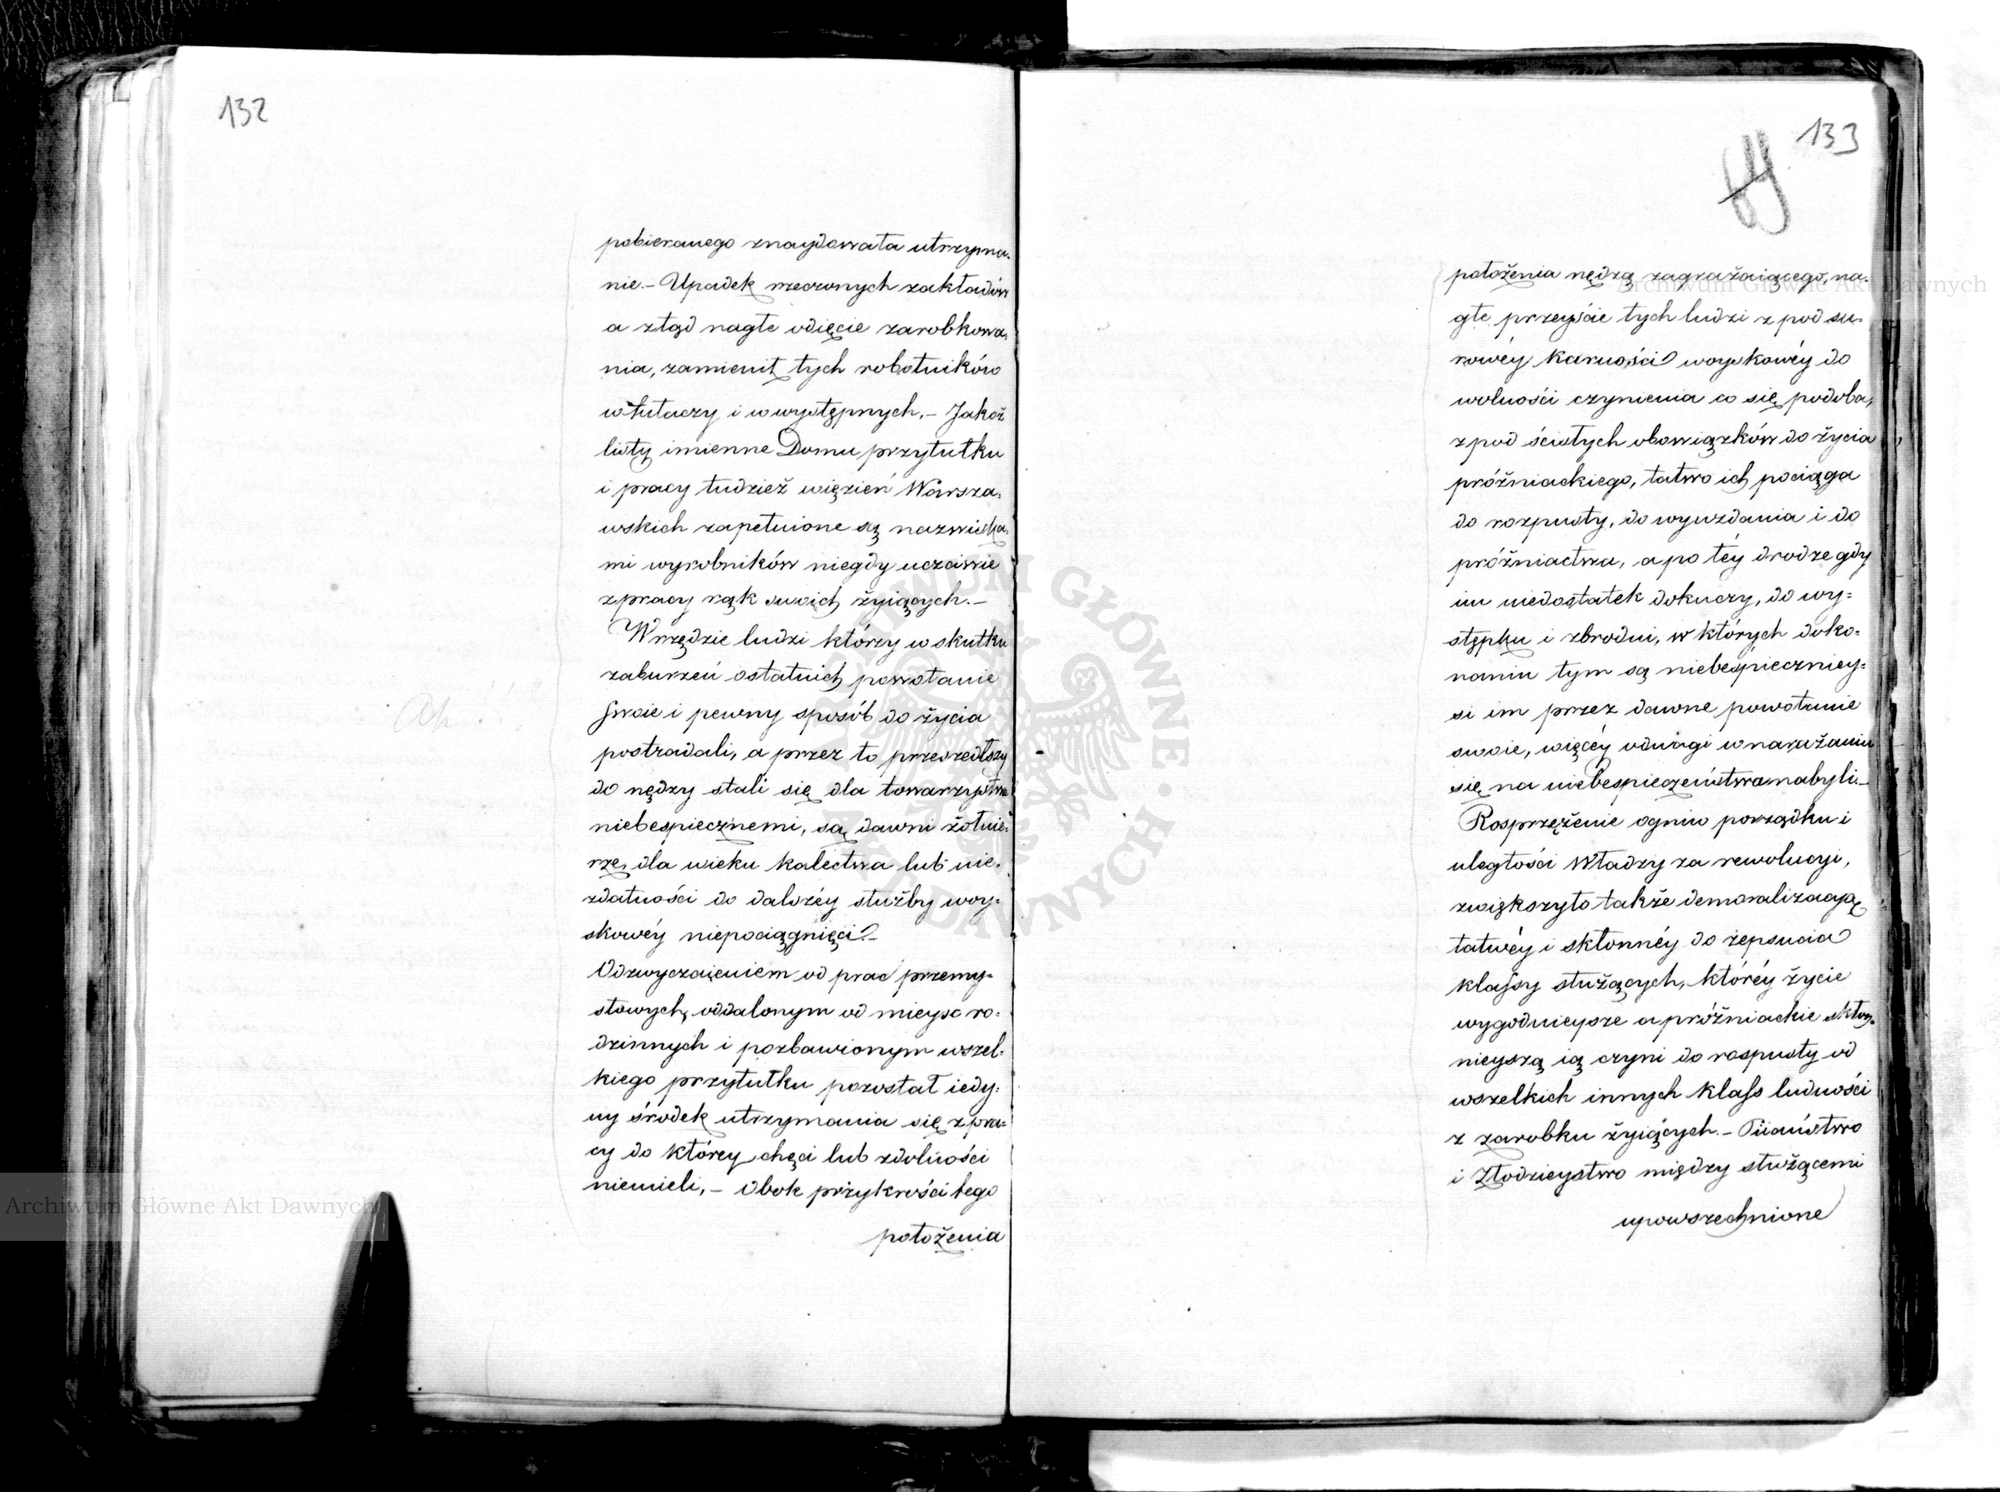 132
pobieranego znaydowała utrzyma-
nie. – Upadek rzeczonych zakładów
a ztąd nagłe odięcie zarobkowa-
nia, zamienił tych robotników
w tułaczy i w występnych. – Jakoż
listy imienne Domu przytułku
i pracy tudzież więzień Warsza-
wskich zapełnione są nazwiska-
mi wyrobników niegdy uczciwie
z pracy rąk swoich żyiących. –
W rzędzie ludzi którzy w skutku
zaburzeń ostatnich powołanie
swoie i pewny sposób do życia
postradali, a przez to przeszedłszy
do nędzy stali się dla towarzystwa
niebespiecznemi, są dawni żołnie-
rze, dla wieku kalectwa lub nie-
zdatności do dalszéy służby woy-
skowéy niepociągnięci. –
Odzwyczaieniem od prac przemy-
słowych, oddalonym od mieysc ro-
dzinnych i pozbawionym wszel-
kiego przytułku pozostał iedy-
ny środek utrzymania się z pra-
cy do któréy chęci lub zdolności
niemieli, – Obok przykrości tego
położenia
133
położenia nędzą zagrażaiącego, na-
głe przeyście tych ludzi z pod su-
rowéy karności woyskowéy do
wolności czynienia co się podoba,
z pod ścisłych obowiązków do życia
próżniackiego, łatwo ich pociąga
do rozpusty, do wyuzdania i do
próżniactwa, a po téy drodze gdy
im niedostatek dokuczy, do wy-
stępku i zbrodni, w których doko-
naniu tym są niebespieczniey-
si im przez dawne powołanie
swoie, więcéy odwagi w narażaniu
się na niebespieczeństwa nabyli. –
Rosprzężenie ogniw porządku i
uległości Władzy za rewolucyi,
zwiększyło także demoralizacyą
łatwéy i skłonnéy do zepsucia
klassy służących, któréy życie
wygodnieysze a próżniackie skłon-
nieyszą ią czyni do rospusty od
wszelkich innych klass ludności
z zarobku żyiących. – Piiaństwo
i Złodzieystwo między służącemi
upowszechnione
Archiwum Główne Akt Dawnych
Archiwum Główne Akt Dawnych
ARCHIWUM GŁÓWNE AKT DAWNYCH